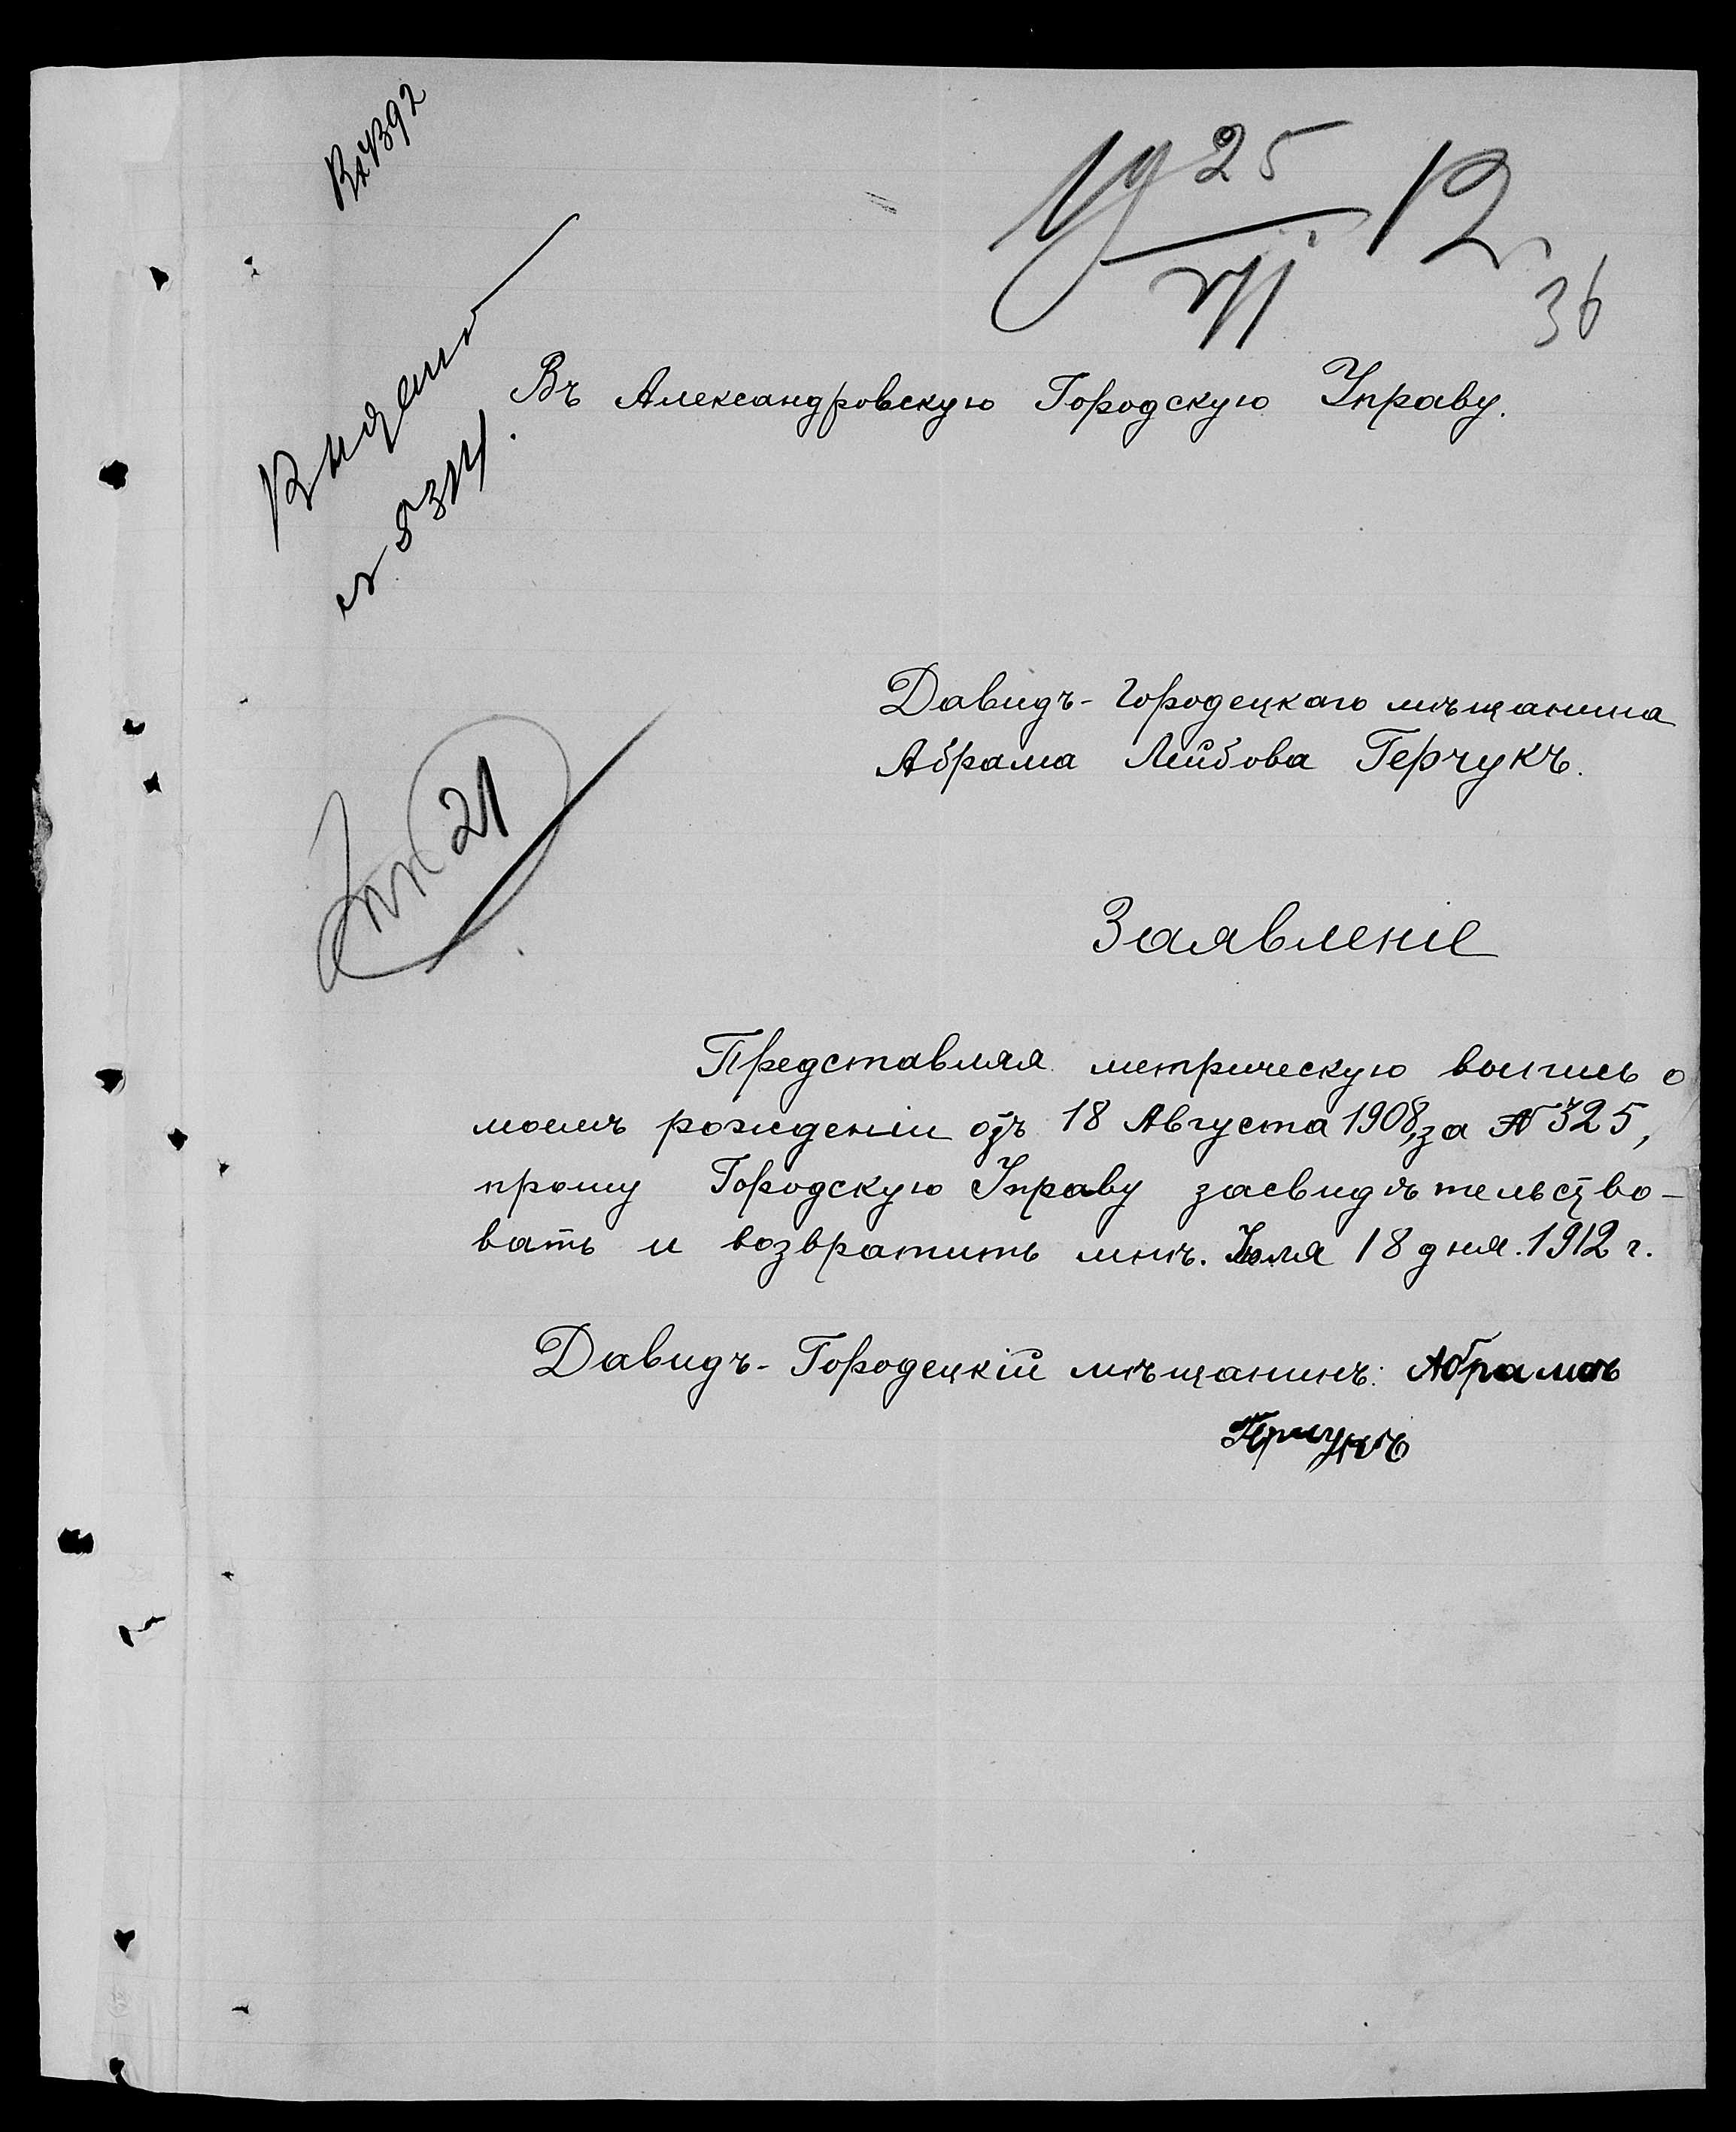 Вх 4392
19 25/VII 12
36
Въ Александровскую Городскую Управу.
Давидъ-Городецкаго мѣщанина
Абрама Лейбова Герчукъ.
21
Заявленіе
Представляя метрическую выпись о
моемъ рожденіи отъ 18 Августа 1908, за № 325,
прошу Городскую Управу засвидѣтельство-
вать и возвратить мнѣ. Іюля 18 дня. 1912 г.
Давидъ-Городецкій мѣщанинъ: Абрамъ
Герчукъ